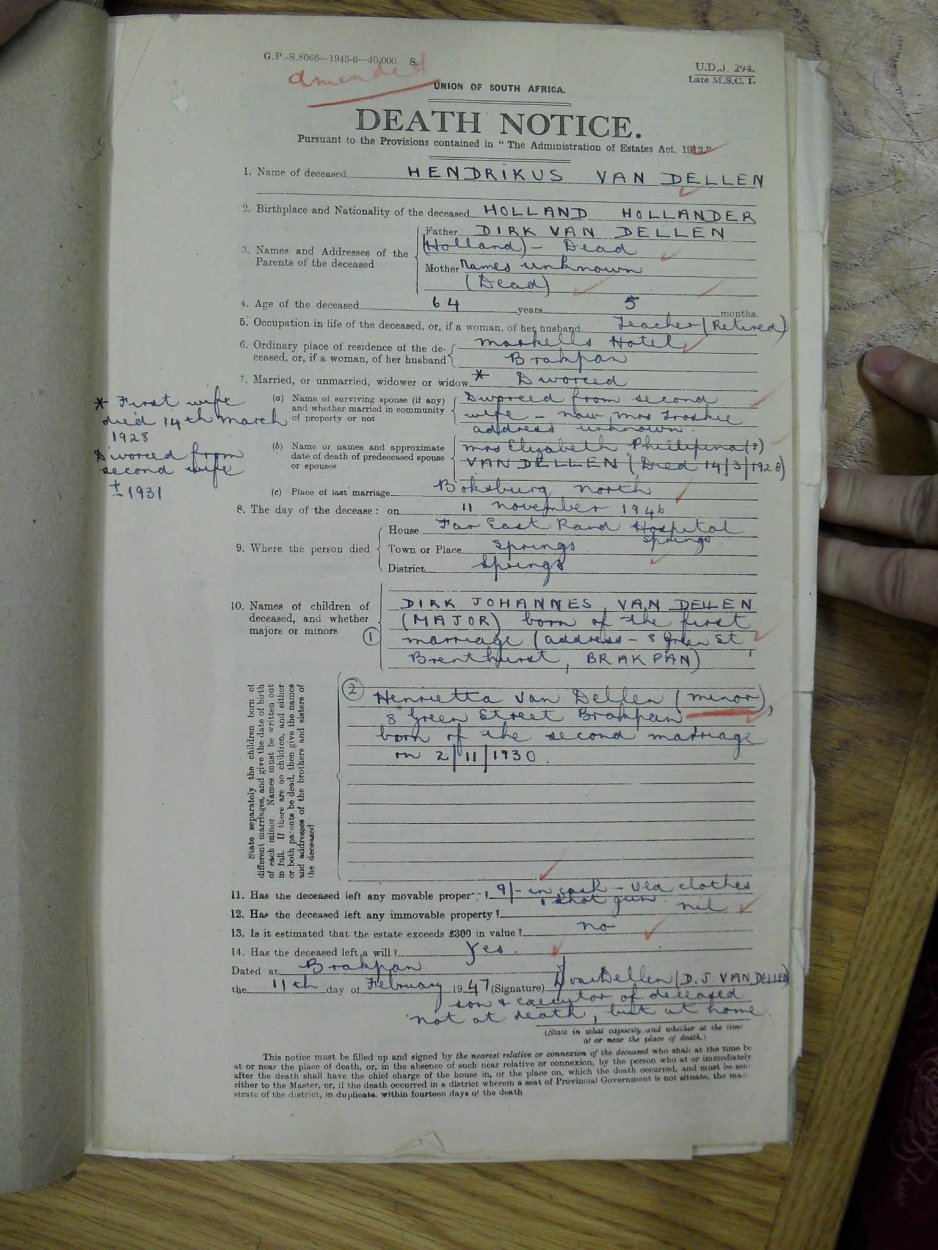 G.P.-S.8066—1945-6—40,000. S.
U.D.J. 294.
Late M.S.C. 1.
amended
UNION OF SOUTH AFRICA.
DEATH NOTICE.
Pursuant to the Provisions contained in "The Administration of Estates Act, 1913."
1. Name of deceased HENDRIKUS VAN DELLEN
2. Birthplace and Nationality of the deceased HOLLAND HOLLANDER
3. Names and Addresses of the Parents of the deceased
Father DIRK VAN DELLEN
(Holland) - Dead
Mother Names unknown
(Dead)
4. Age of the deceased 64 years 5 months.
5. Occupation in life of the deceased, or, if a woman, of her husband Teacher (Retired)
6. Ordinary place of residence of the deceased, or, if a woman, of her husband
Hotel,
Brakpan
7. Married, or unmarried, widower or widow * Divorced
* First wife
died 14th March
1928
Divorced from
second wife
± 1931
(a) Name of surviving spouse (if any) and whether married in community of property or not
Divorced from second
wife - now Mrs Troskie
address unknown.
(b) Name or names and approximate date of death of predeceased spouse or spouses
Mrs Elizabeth Phillipina (?)
VAN DELLEN (Died 14/3/1928)
(c) Place of last marriage Boksburg North
8. The day of the decease: on 11 November 1946
9. Where the person died
House Far East Rand Hospital
Springs
Town or Place Springs
District Springs
10. Names of children of deceased, and whether majors or minors
(1) DIRK JOHANNES VAN DELLEN
(MAJOR) born of the first
marriage (address - 8 Green St,
Brenthurst, BRAKPAN)
State separately the children born of
different marriages, and give the date of birth
of each minor. Names must be written out
in full. If there are no children, and either
or both parents be dead, then give the names
and addresses of the brothers and sisters of
the deceased
(2) Henrietta van Dellen (minor),
8 Green Street Brakpan
born of the second marriage
on 2/11/1930.
11. Has the deceased left any movable property? 9/- in cash - old clothes
1 shot gun.
12. Has the deceased left any immovable property? nil
13. Is it estimated that the estate exceeds £300 in value? no
14. Has the deceased left a will? Yes.
Dated at Brakpan
the 11th day of February 1947 (Signature) DvanDellen (D.J. VAN DELLEN)
son & executor of deceased
not at death, but at home.
(State in what capacity, and whether at the time
at or near the place of death.)
This notice must be filled up and signed by the nearest relative or connexion of the deceased who shall at the time be
at or near the place of death, or, in the absence of such near relative or connexion, by the person who at or immediately
after the death shall have the chief charge of the house in, or the place on, which the death occurred, and must be sent
either to the Master, or, if the death occurred in a district wherein a seat of Provincial Government is not situate, the ma-
strate of the district, in duplicate, within fourteen days of the death